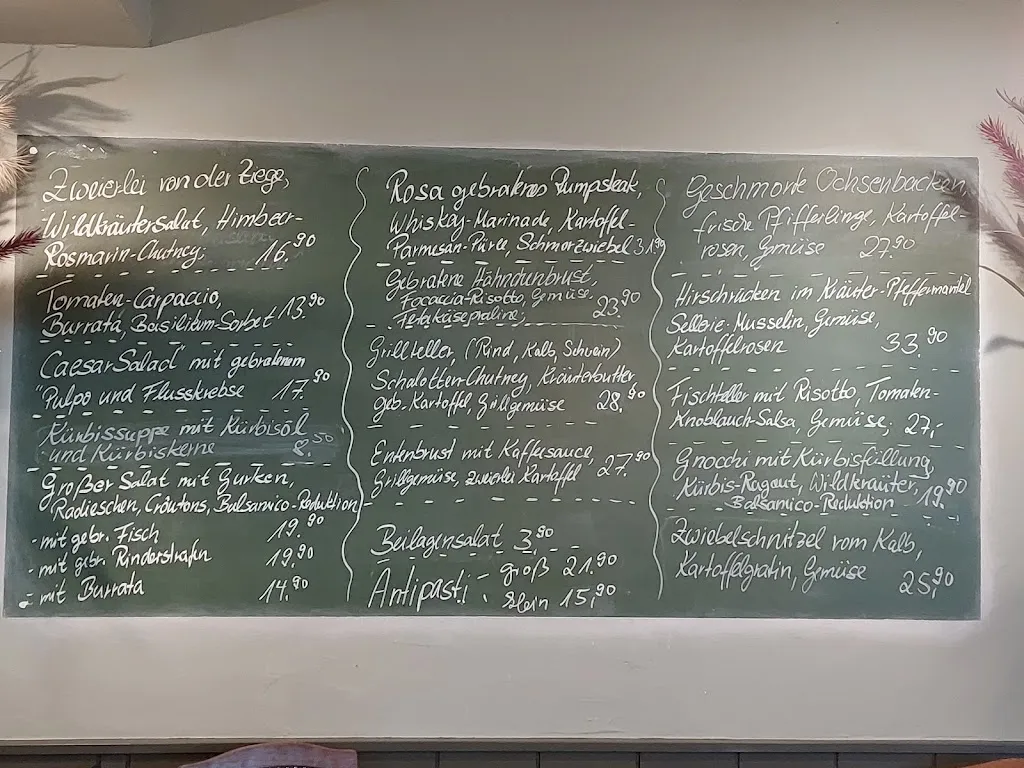 Zweierlei von der Ziege,
Wildkräutersalat, Himbeer-
Rosmarin-Chutney; 16.90
Tomaten-Carpaccio,
Burrata, Basilikum-Sorbet 13.90
Caesar Salad mit gebratenem
Pulpo und Flusskrebse 17.90
Kürbissuppe mit Kürbisöl
und Kürbiskerne 8.50
Großer Salat mit Gurken,
Radieschen, Croutons, Balsamico-Reduktion
- mit gebr. Fisch 19.90
- mit gebr. Rinderstrafn 19.90
- mit Burrata 14.90
Rosa gebratenes Rumpsteak,
Whiskey-Marinade, Kartoffel-
Parmesan-Püree, Schmorzwiebel 31.90
Gebratene Hähnchenbrust,
Focaccia-Risotto, Gemüse,
Fetakäsepraline; 23.90
Grillteller, (Rind, Kalb, Schwein)
Schalotten-Chutney, Kräuterbutter
geb. Kartoffel, Grillgemüse 28.90
Entenbrust mit Kaffeesauce,
Grillgemüse, zweierlei Kartoffel 27.90
Beilagensalat 3.90
Antipasti - groß 21,90
- klein 15,90
Geschmorte Ochsenbacken,
frische Pfifferlinge, Kartoffel-
rosen, Gemüse 27.90
Hirschrücken im Kräuter-Pfeffermantel
Sellerie-Musselin, Gemüse,
Kartoffelrosen 33.90
Fischteller mit Risotto, Tomaten-
Knoblauch-Salsa, Gemüse; 27,-
Gnocchi mit Kürbisfüllung,
Kürbis-Ragout, Wildkräuter, 19.90
Balsamico-Reduktion
Zwiebelschnitzel vom Kalb,
Kartoffelgratin, Gemüse 25,90